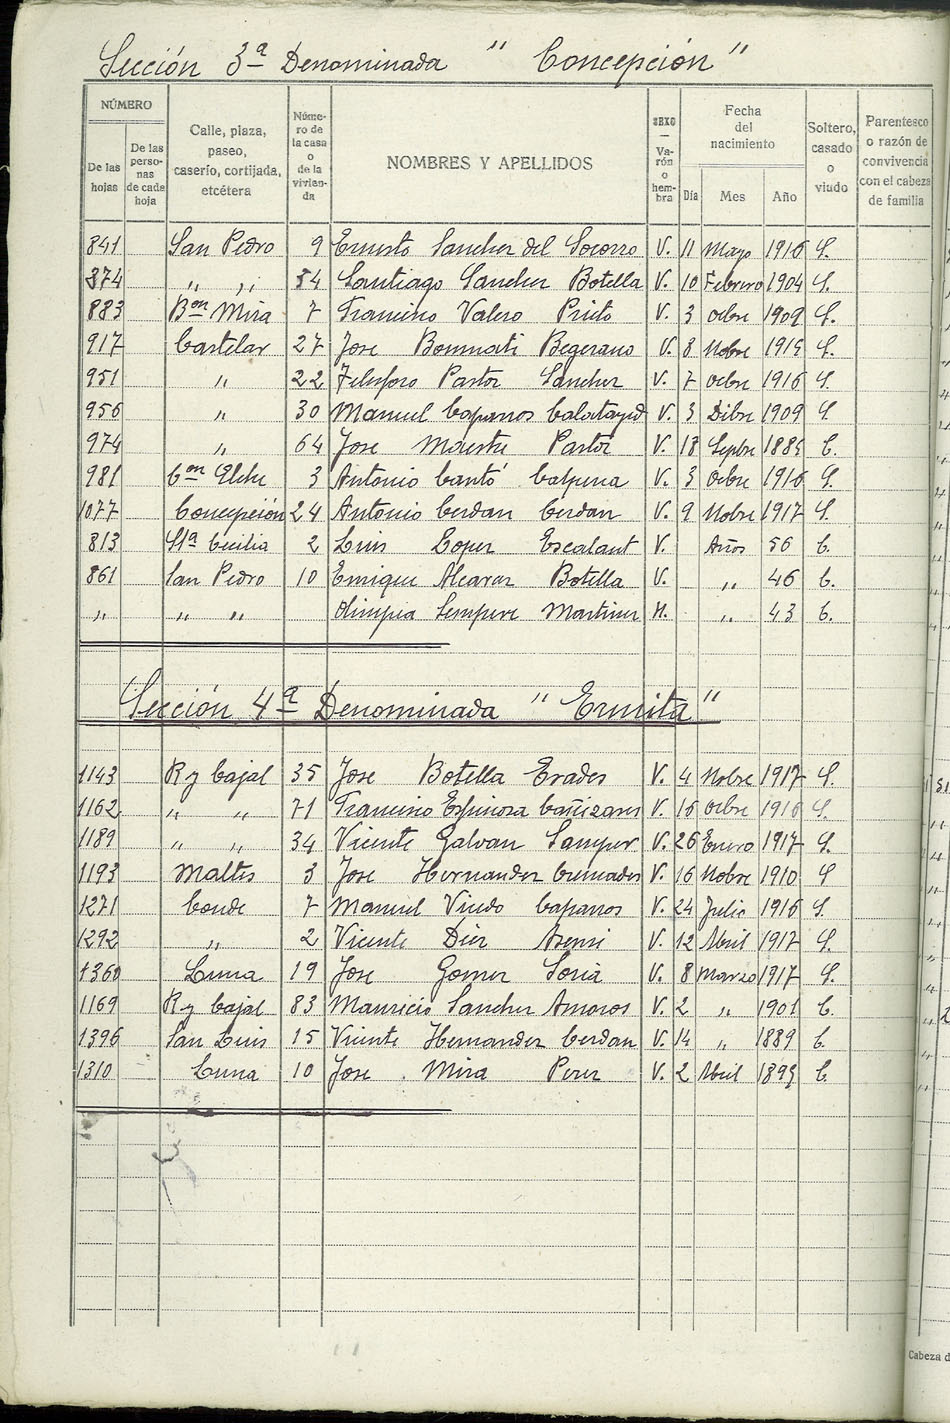 Sección 3ª Denominada " Concepción "
NÚMERO
De las hojas
De las personas de cada hoja
Calle, plaza, paseo, caserío, cortijada, etcétera
Número de la casa o de la vivienda
NOMBRES Y APELLIDOS
SEXO — Varón o hembra
Fecha del nacimiento
Día Mes Año
Soltero, casado o viudo
Parentesco o razón de convivencia con el cabeza de familia
841 San Pedro 9 Ernesto Sanchez del Socorro V. 11 Mayo 1916 S.
874 " " 54 Santiago Sanchez Botella V. 10 Febrero 1904 S.
883 Bon Mira 7 Francisco Valero Prieto V. 3 Octbre 1909 S.
917 Castelar 27 Jose Bonmati Begerano V. 8 Nobre 1915 S.
951 " 22 Telesforo Pastor Sanchez V. 7 Octbre 1916 S.
956 " 30 Manuel Caparros Calatayud V. 3 Dibre 1909 S
974 " 64 Jose Maestre Pastor V. 18 Sepbre 1885 C.
981 Con Elche 3 Antonio Cantó Calpena V. 3 Octbre 1916 S.
1077 Concepción 24 Antonio Cerdan Cerdan V. 9 Nobre 1917 S.
813 Sta Cecilia 2 Luis Lopez Escalant V. Años 56 C.
861 San Pedro 10 Enrique Alcaraz Botella V. " 46 C.
" " " Olimpia Sempere Martinez H. " 43 C.
Sección 4ª Denominada " Ermita "
1143 R y Cajal 35 Jose Botella Erades V. 4 Nobre 1917 S.
1162 " " 71 Francisco Espinosa Cañizares V. 15 Octbre 1916 S.
1189 " " 34 Vicente Galvan Samper V. 26 Enero 1917 S.
1193 Maltes 3 Jose Hernandez Cremades V. 16 Nobre 1910 S
1271 Conde 7 Manuel Viudo Caparros V. 24 Julio 1916 S.
1292 " 2 Vicente Diez Asensi V. 12 Abril 1917 S.
1360 Luna 19 Jose Gomez Soria V. 8 Marzo 1917 S.
1169 R y Cajal 83 Mauricio Sanchez Amoros V. 2 " 1901 C.
1396 San Luis 15 Vicente Hernandez Cerdan V. 14 " 1889 C.
1310 Luna 10 Jose Mira Perez V. 2 Abril 1895 C.
Cabeza d